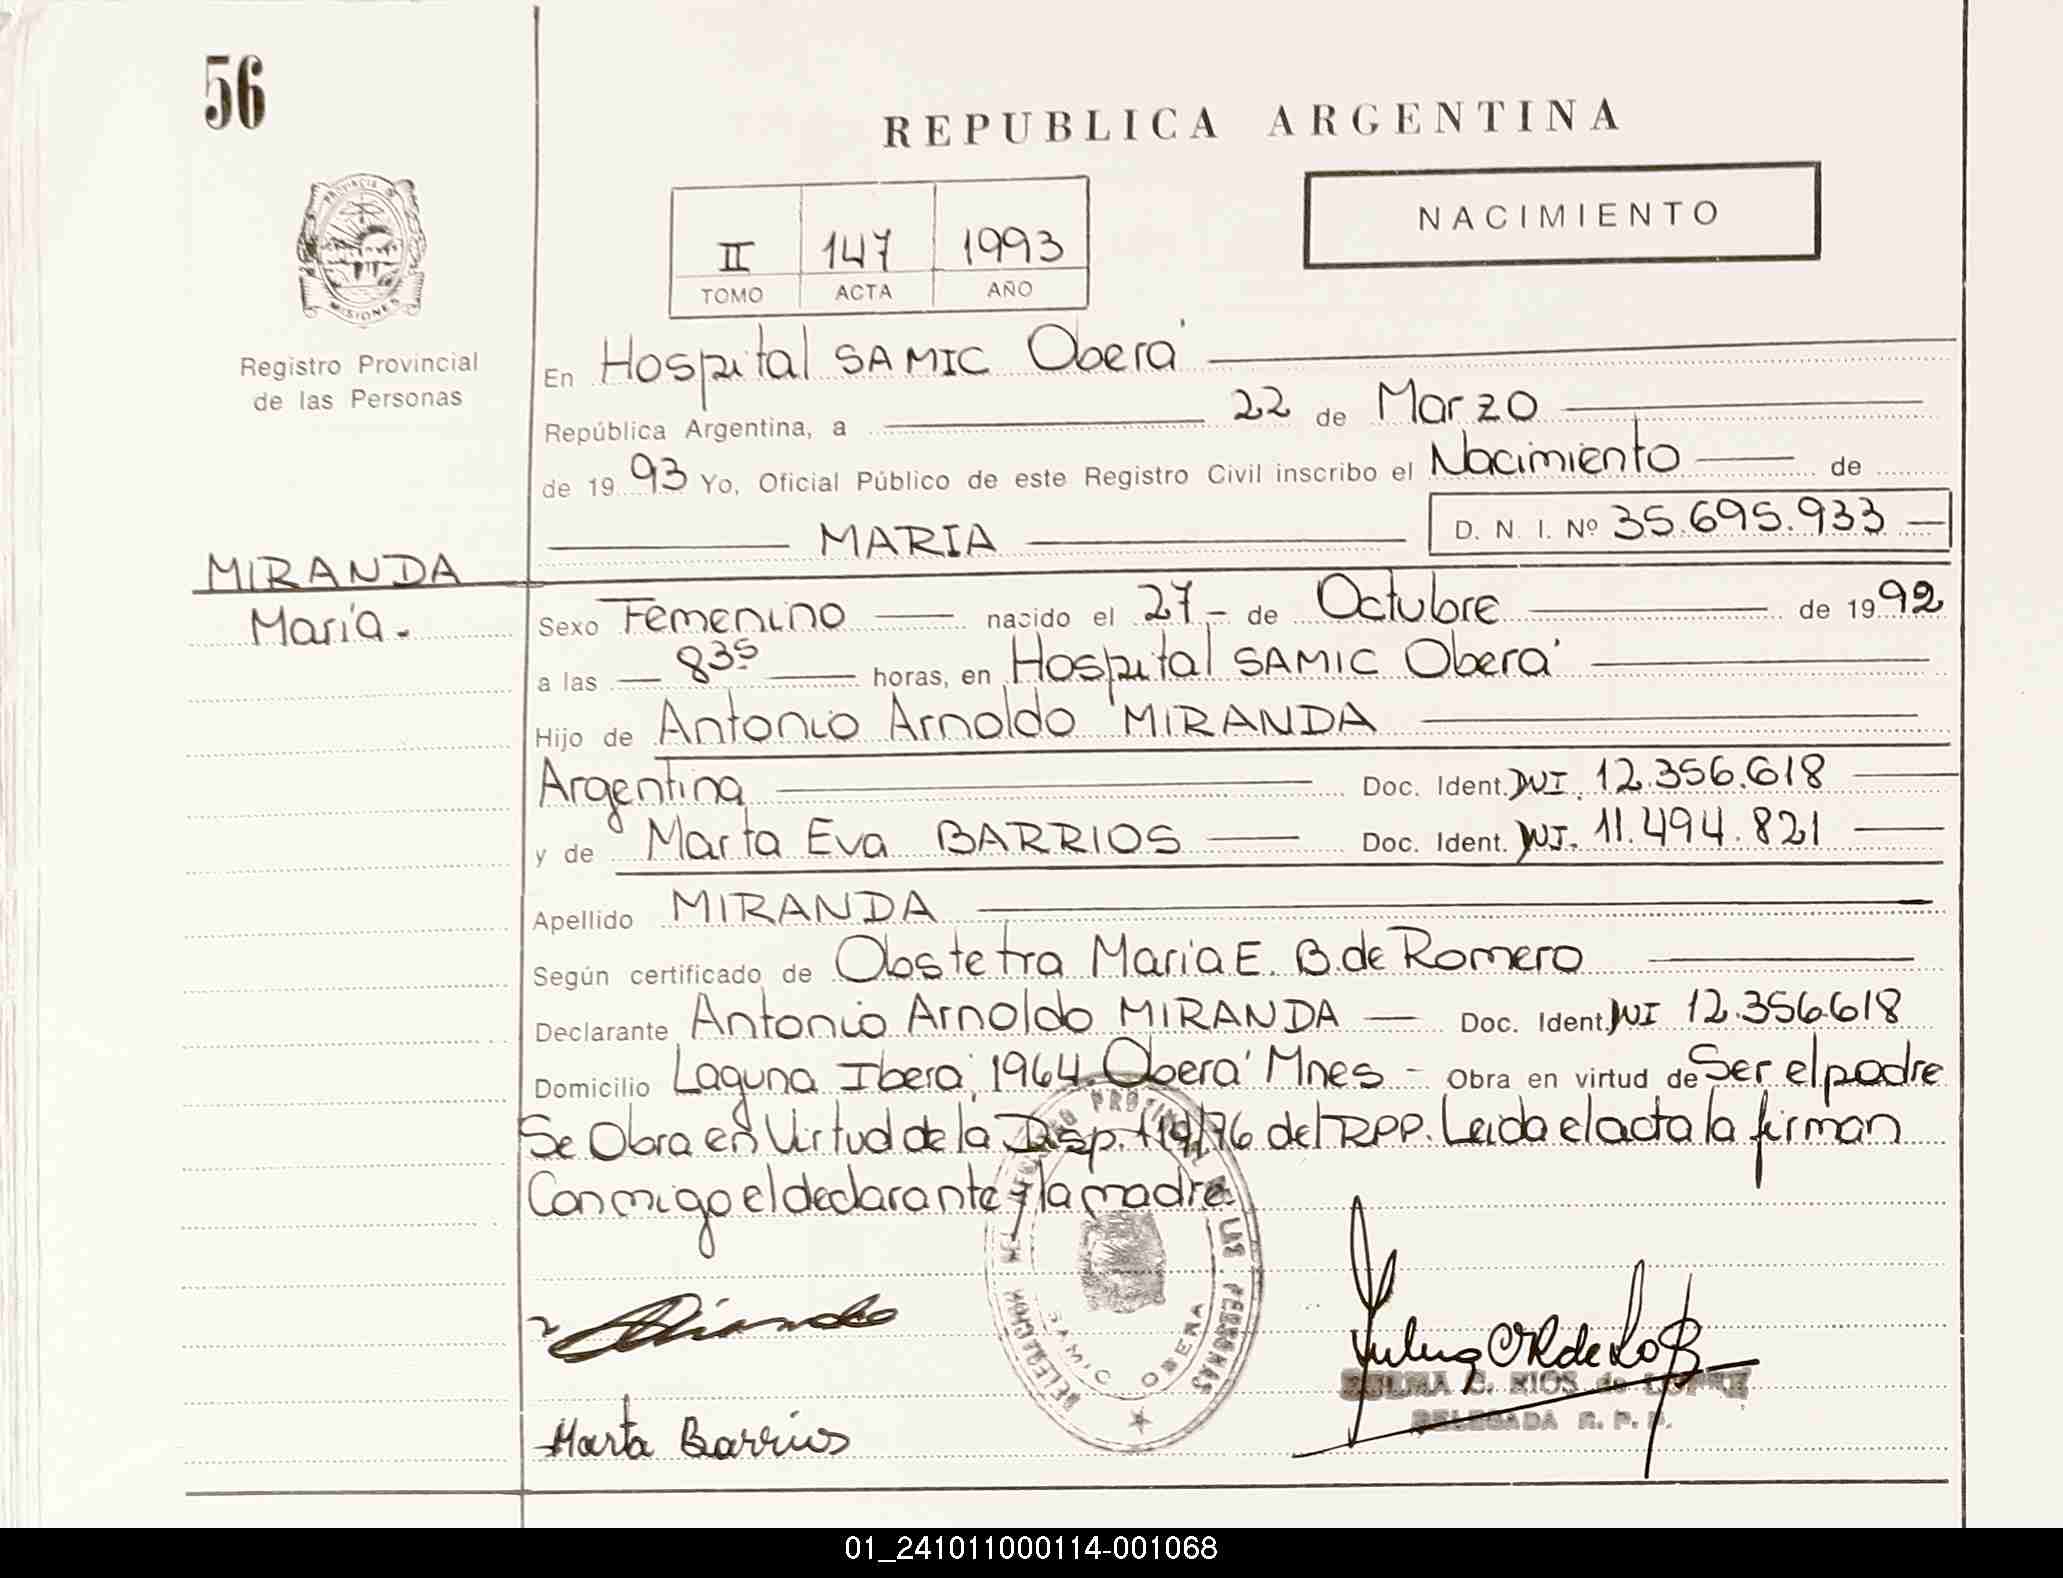 56
REPUBLICA ARGENTINA
NACIMIENTO
PROVINCIA DE
MISIONES
II 147 1993
TOMO ACTA AÑO
Registro Provincial
de las Personas
En Hospital SAMIC Oberá
República Argentina, a 22 de Marzo
de 1993 Yo, Oficial Público de este Registro Civil inscribo el Nacimiento de
MARIA D. N. I. Nº 35.695.933
MIRANDA
María.
Sexo Femenino nacido el 27 de Octubre de 1992
a las 8 35 horas, en Hospital SAMIC Oberá
Hijo de Antonio Arnoldo MIRANDA
Argentina Doc. Ident. DNI. 12.356.618
y de Marta Eva BARRIOS Doc. Ident. DNI. 11.494.821
Apellido MIRANDA
Según certificado de Obstetra Maria E. B. de Romero
Declarante Antonio Arnoldo MIRANDA Doc. Ident. DNI 12.356.618
Domicilio Laguna Iberá 1964. Oberá Mnes - Obra en virtud de Ser el padre
Se Obra en Virtud de la Disp. 119/76 del RPP. Leida el acta la firman
Conmigo el declarante y la madre
DELEGACION DEL REGISTRO PROVINCIAL DE LAS PERSONAS
SAMIC OBERA
Marta Barrios
C. RIOS de LOPEZ
DELEGADA R. P. P.
01_241011000114-001068